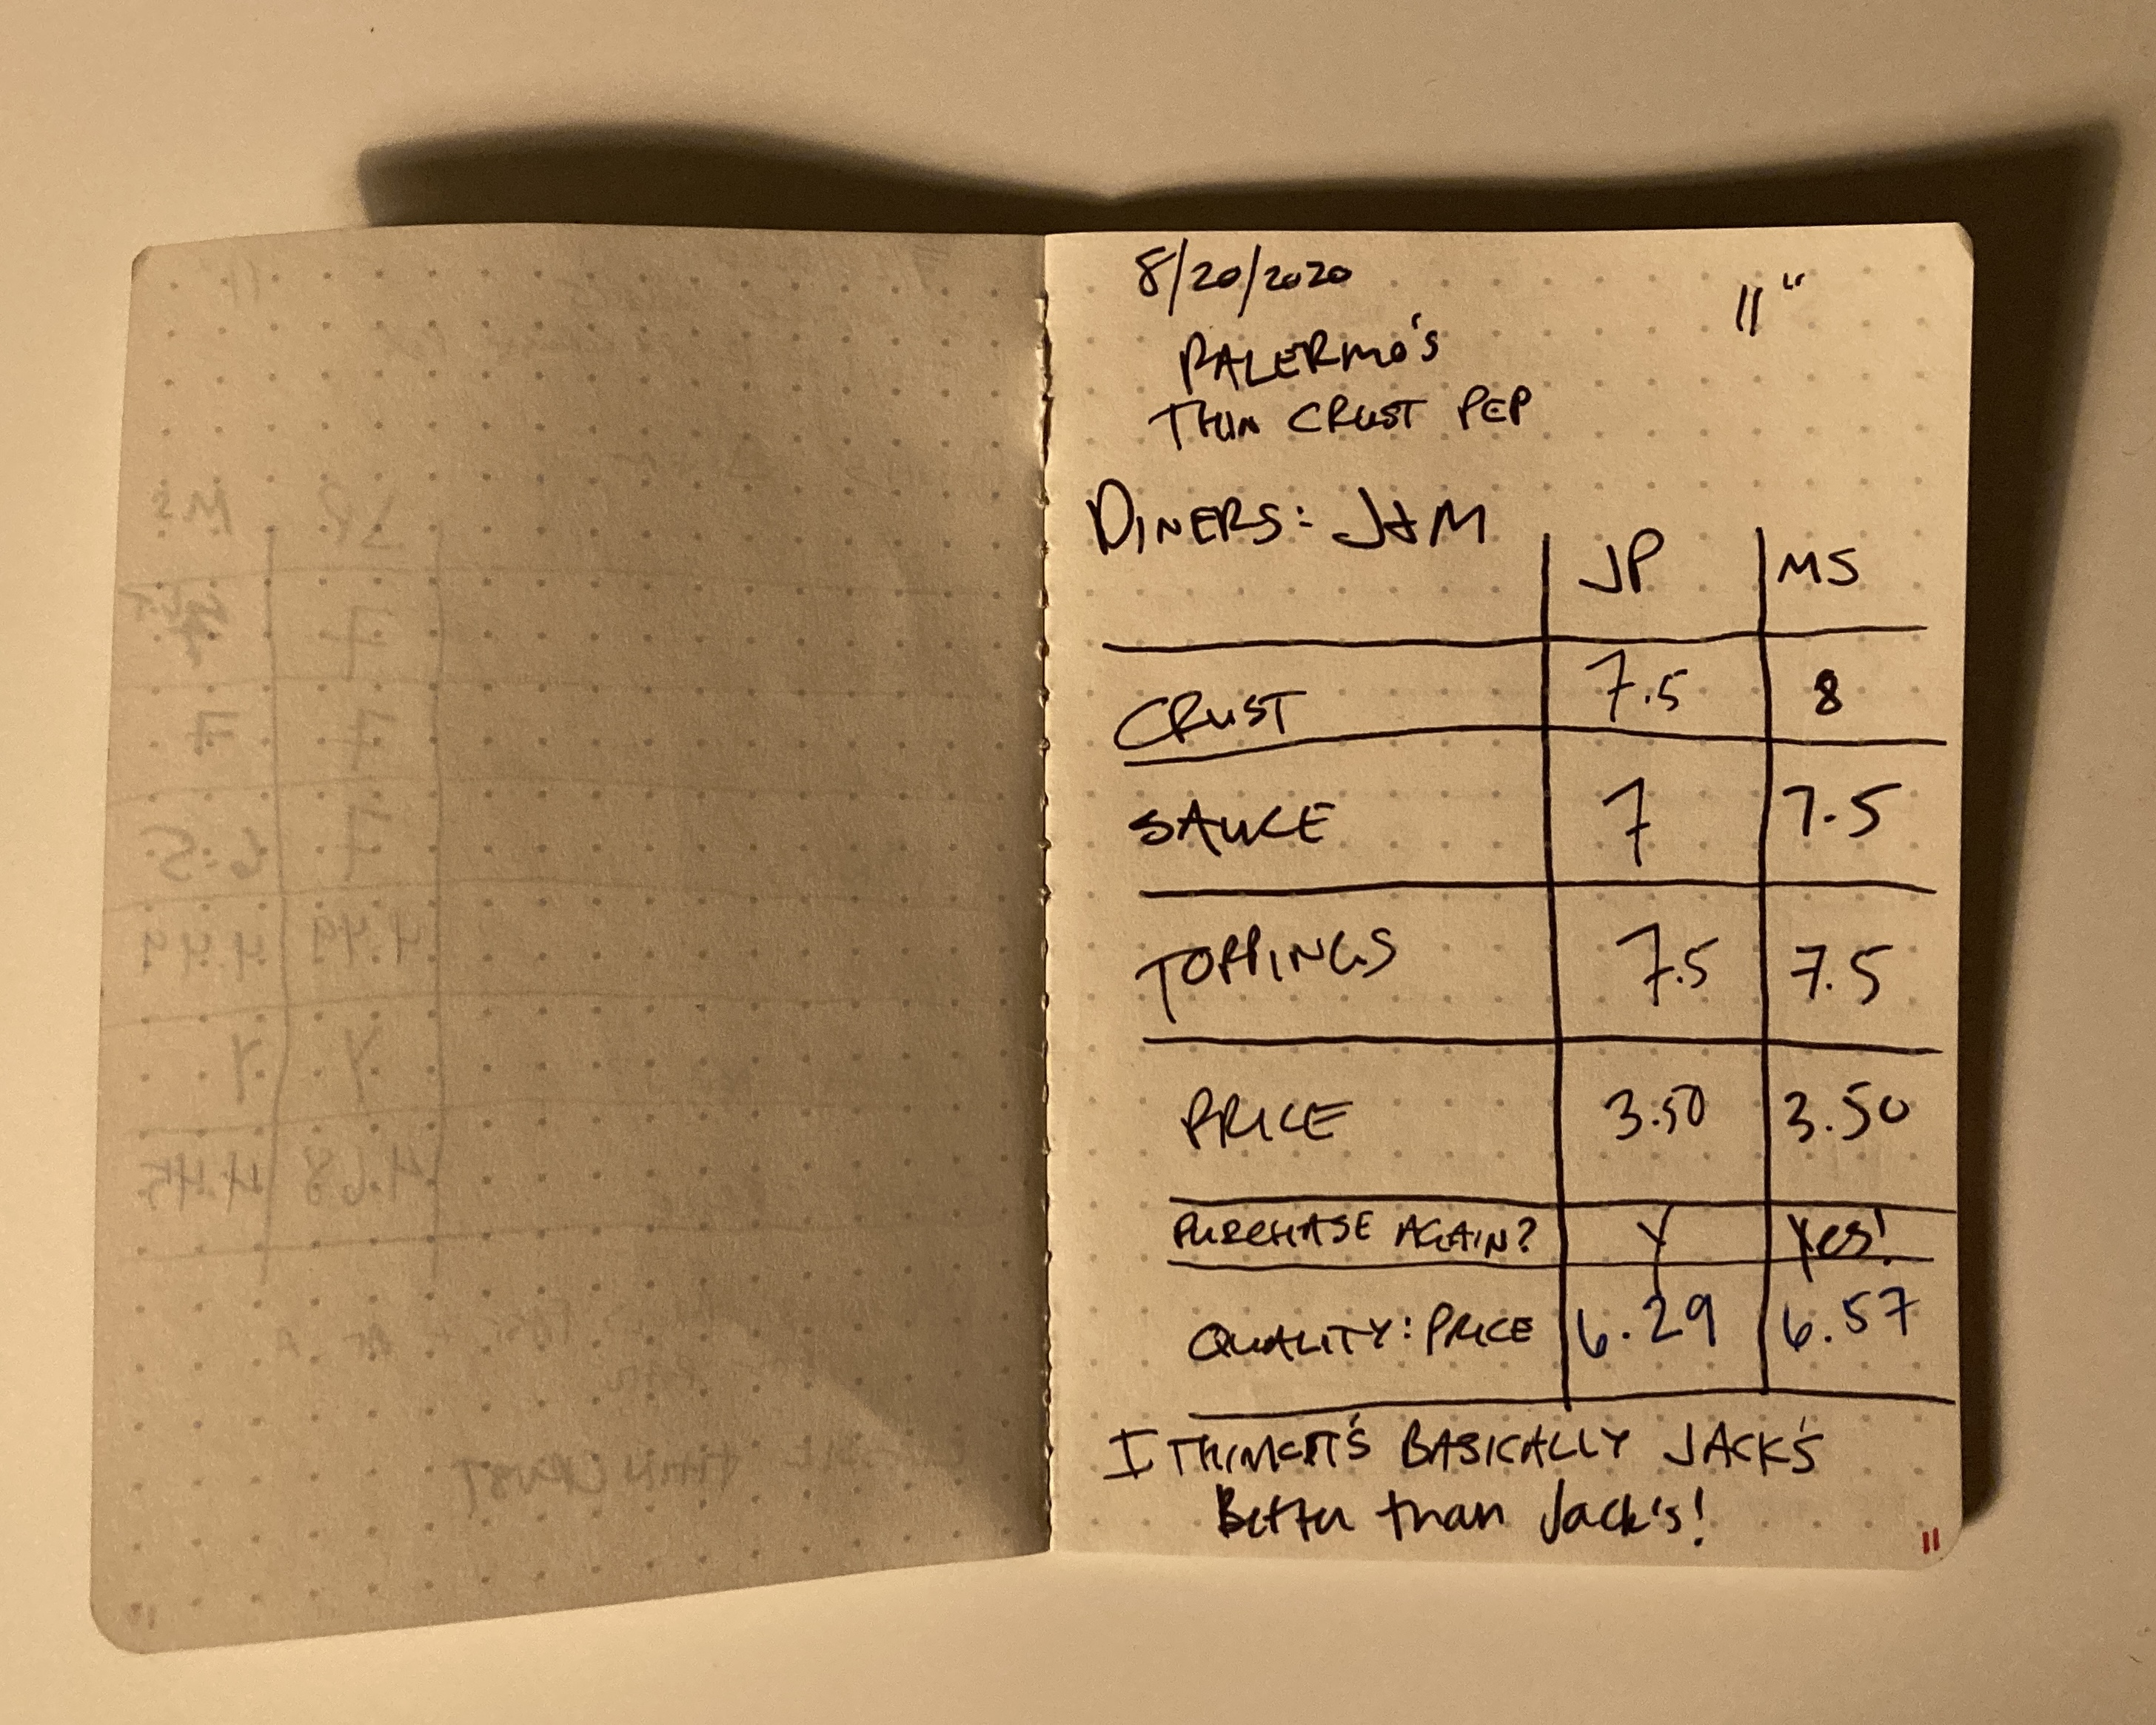 8/20/2020 11"
PALERMO'S
THIN CRUST PEP
DINERS: J&M
JP MS
CRUST 7.5 8
SAUCE 7 7.5
TOPPINGS 7.5 7.5
PRICE 3.50 3.50
PURCHASE AGAIN? Y Yes!
QUALITY:PRICE 6.29 6.57
I THINK IT'S BASICALLY JACK'S
Better than Jack's!
11
MS JP
7
7 7
6.5 7
4.49 4.49
Y Y
4.45 4.68
THIN CRUST